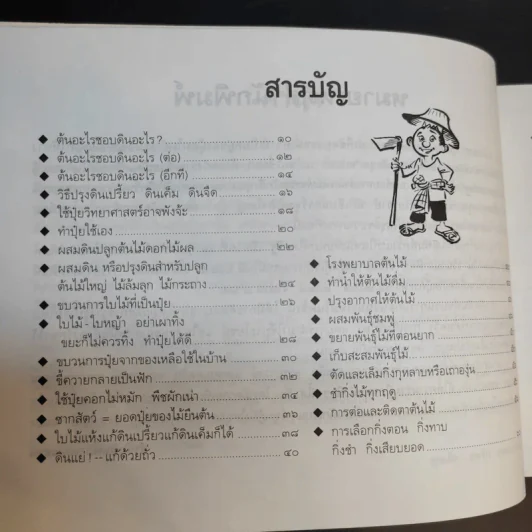 สารบัญ
◆ ต้นอะไรชอบดินอะไร? ๑๐
◆ ต้นอะไรชอบดินอะไร (ต่อ) ๑๒
◆ ต้นอะไรชอบดินอะไร (อีกที) ๑๔
◆ วิธีปรุงดินเปรี้ยว ดินเค็ม ดินจืด ๑๖
◆ ใช้ปุ๋ยวิทยาศาสตร์อาจพังจ้ะ ๑๘
◆ ทำปุ๋ยใช้เอง ๒๐
◆ ผสมดินปลูกต้นไม้ดอกไม้ผล ๒๒
◆ ผสมดิน หรือปรุงดินสำหรับปลูก
ต้นไม้ใหญ่ ไม้ล้มลุก ไม้กระถาง ๒๔
◆ ขบวนการใบไม้ที่เป็นปุ๋ย ๒๖
◆ ใบไม้-ใบหญ้า อย่าเผาทิ้ง
ขยะก็ไม่ควรทิ้ง ทำปุ๋ยได้ดี ๒๘
◆ ขบวนการปุ๋ยจากของเหลือใช้ในบ้าน ๓๐
◆ ขี้ควายกลายเป็นฟัก ๓๒
◆ ใช้ปุ๋ยคอกไม่หมัก พืชผักเน่า ๓๔
◆ ซากสัตว์ = ยอดปุ๋ยของไม้ยืนต้น ๓๖
◆ ใบไม้แห้งแก้ดินเปรี้ยวแก้ดินเค็มก็ได้ ๓๘
◆ ดินแย่!--แก้ด้วยถั่ว ๔๐
◆ โรงพยาบาลต้นไม้
◆ ทำน้ำให้ต้นไม้ดื่ม
◆ ปรุงอากาศให้ต้นไม้
◆ ผสมพันธุ์ชมพู่
◆ ขยายพันธุ์ไม้ที่ตอนยาก
◆ เก็บสะสมพันธุ์ไม้
◆ ตัดและเล็มกิ่งกุหลาบหรือเถาองุ่น
◆ ชำกิ่งไม้ทุกฤดู
◆ การต่อและติดตาต้นไม้
◆ การเลือกกิ่งตอน กิ่งทาบ
กิ่งชำ กิ่งเสียบยอด